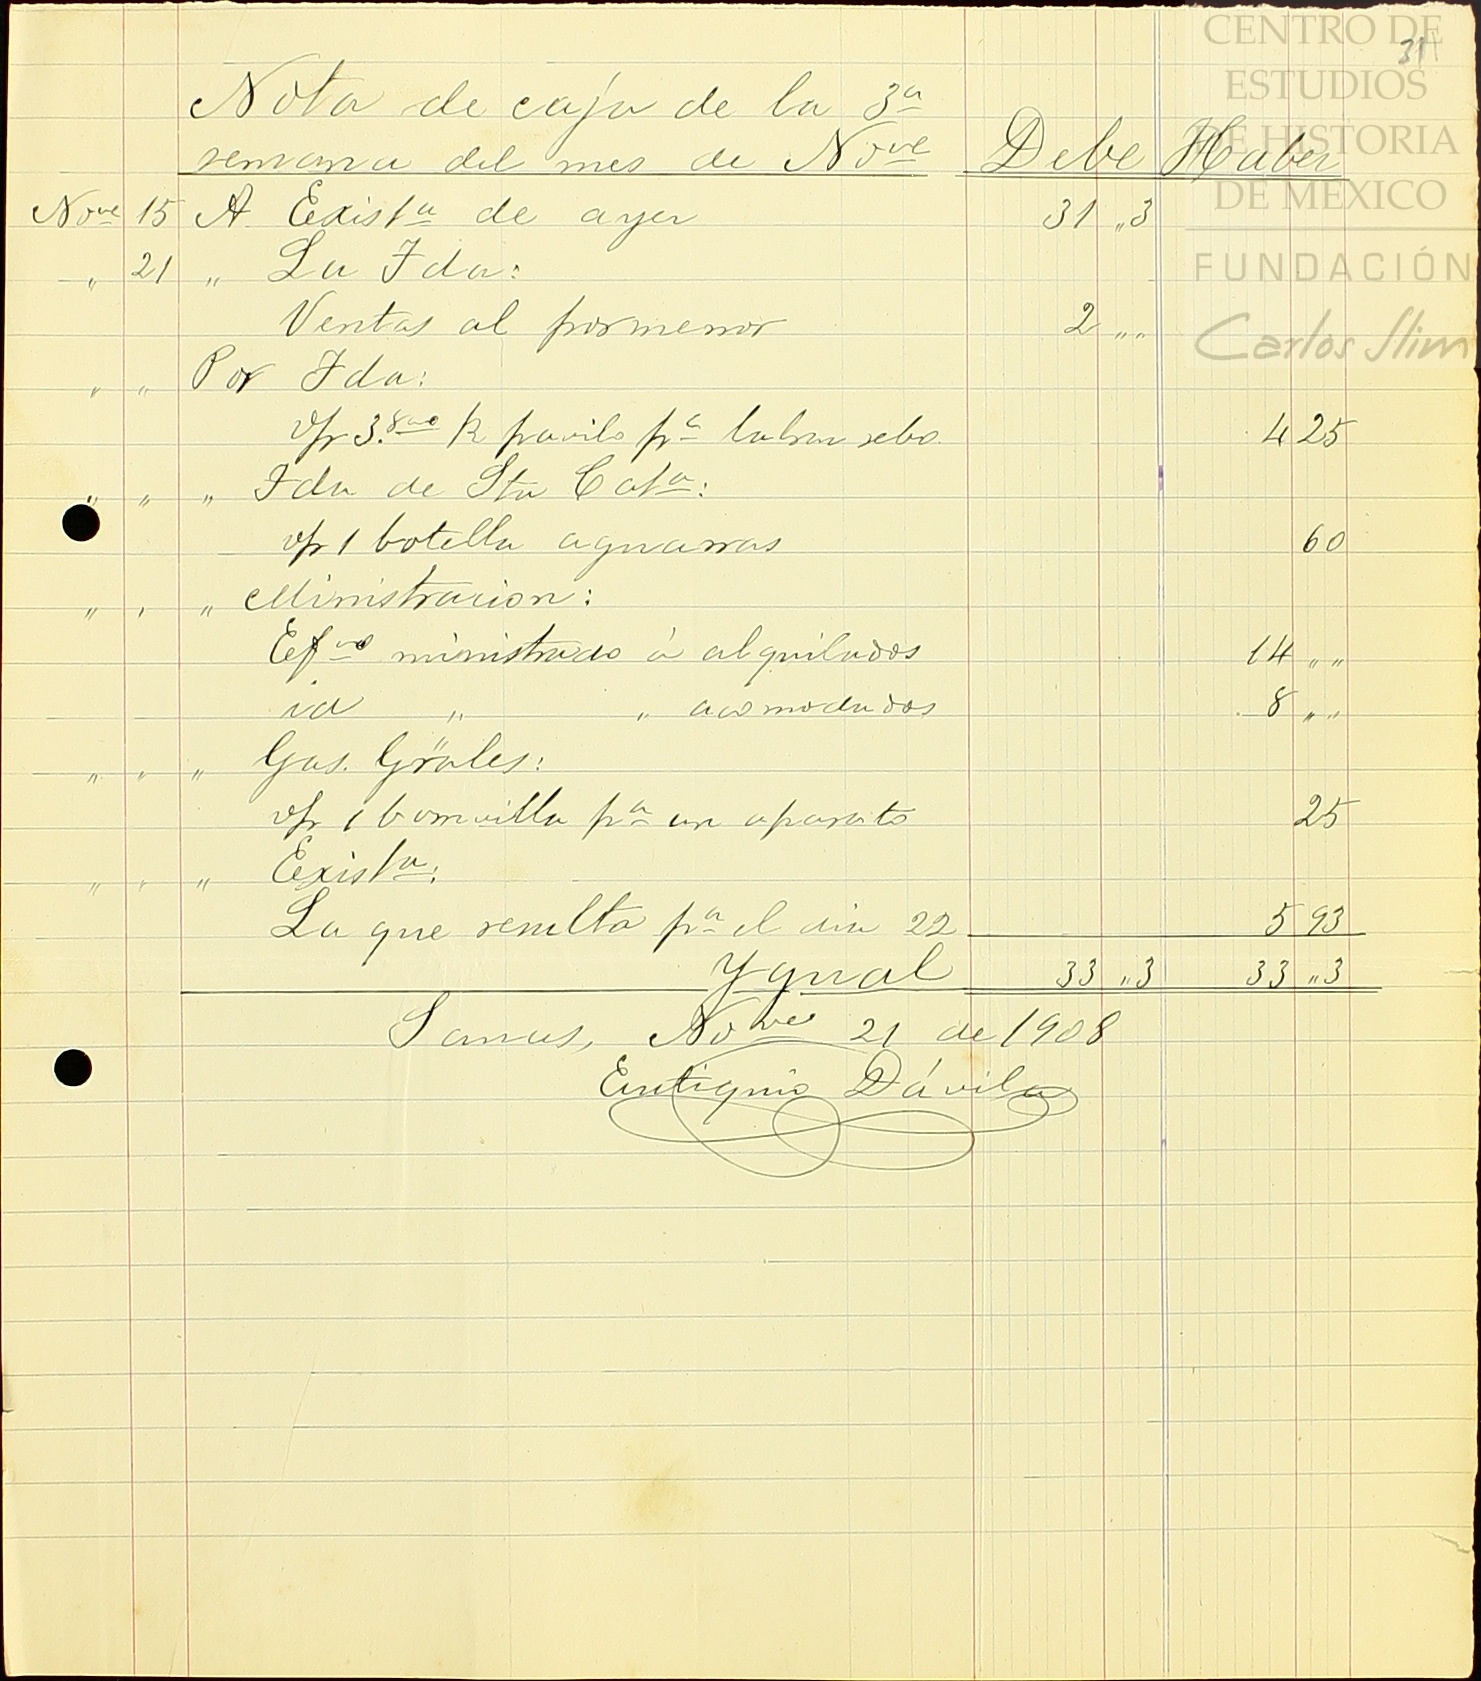 CENTRO DE
ESTUDIOS
DE HISTORIA
DE MEXICO
FUNDACIÓN
Carlos Slim
31
Nota de caja de la 3ª
semana del mes de Nove Debe Haber
Nove 15 A Existª de ayer 31 ,,3
,, 21 ,, La Fda:
Ventas al pormenor 2 ,,,,
,, ,, Por Fda:
v/r 3. k pavilo pª labrar sebo. 4 25
,, ,, ,, Fda de Sta Catª:
v/r 1 botella aguarras 60
,, , ,, Ministracion:
Efvo ministrado á alquilados 14 ,,,,
id ,, ,, acomodados 8 ,,,,
,, ,, ,, Gas. Gräles:
v/r 1 bomvilla pª un aparato 25
,, ,, ,, Existª:
La que resulta pª el dia 22 5 93
Ygual 33 ,,3 33 ,,3
Samas, Nove 21 de 1908
Eutiquio Dávila